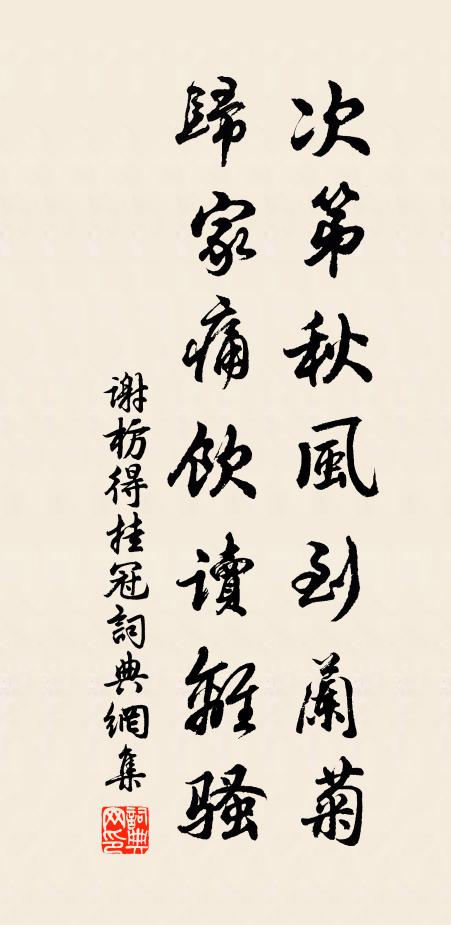 次第秋風到蘭菊
歸家痛飲讀離騷
谢枋得挂冠詞典網集
詞典
网印